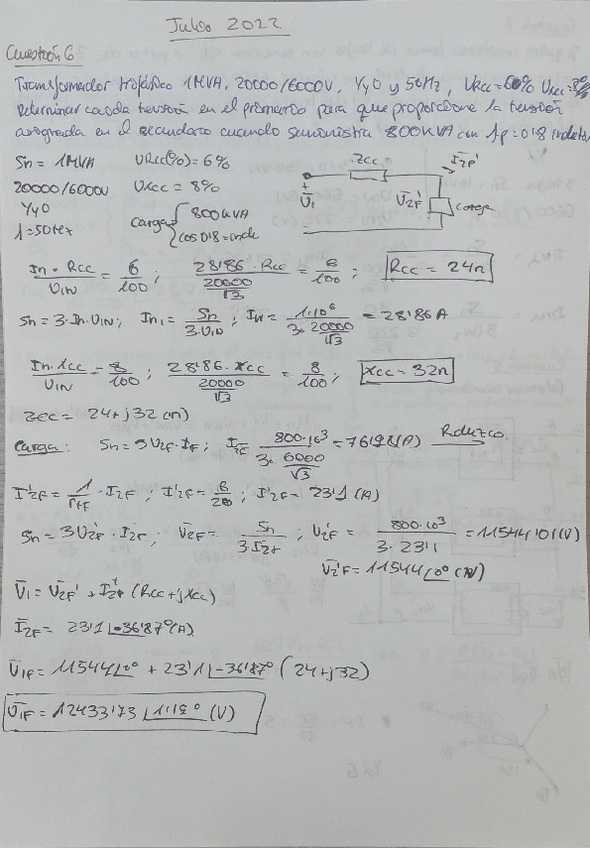 Julio 2022
Cuestión 6
Transformador trifásico 1MVA, 20000/6000V, Yy0 y 50Hz, URcc=6% Uxcc=8%
Determinar cuada tensión en el primario para que proporcione la tensión
asignada en el secundario cuando suministra 800KVA con fp=0'8 inductivo
Sn = 1MVA URcc(%) = 6%
20000/6000V UXcc = 8%
Yy0
f=50Hz
carga { 800KVA
cos 0'8 = indc
Zcc
I2F'
Ū1
Ū2F'
carga
In · Rcc / U1N = 6/100 ; 28'86 · Rcc / (20000/√3) = 6/100 ; Rcc = 24Ω
Sn = 3·In·U1N; In1 = Sn/(3·U1N) ; IN = 1·10⁶/(3·20000/√3) = 28'86 A
In·Xcc/U1N = 8/100 ; 28'86·Xcc/(20000/√3) = 8/100 ; Xcc = 32Ω
Zcc = 24+j32 (Ω)
Carga: Sn = 3U2F·IF; I2F = 800·10³/(3·6000/√3) = 76'98(A) Reduzco.
I'2F = 1/rtf · I2F ; I'2F = 6/20 ; I'2F = 23'1 (A)
Sn = 3U2F'·I2F; Ū2F = Sn/(3·I2F) ; U2'F = 800·10³/(3·23'1) = 11544'01(V)
Ū2'F = 11544∠0° (V)
Ū1 = Ū2F' + I2F' (Rcc+jXcc)
Ī2F = 23'1∠-36'87° (A)
Ū1F = 11544∠0° + 23'1∠-36'87° (24+j32)
Ū1F = 12433'73∠1'12° (V)